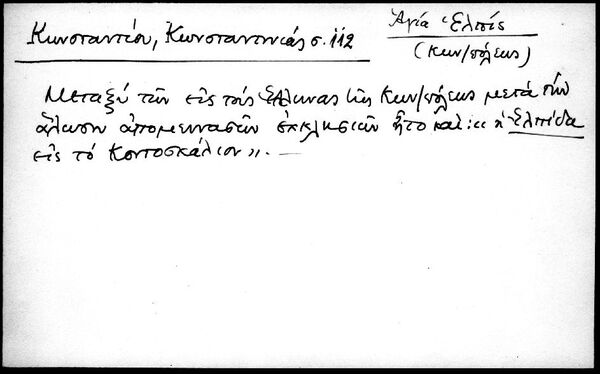 Κωνσταντίου, Κωνσταντινιάς σ. 112
Ἁγία Ἐλπίς
(Κων/πόλεως)
Μεταξύ τῶν εἰς τούς Ἕλληνας τῆς Κων/πόλεως μετά τήν
ἅλωσιν ἀπομεινασῶν ἐκκλησιῶν ἦτο καί: «ἡ Ἐλπίδα
εἰς τό Κοντοσκάλιον». —